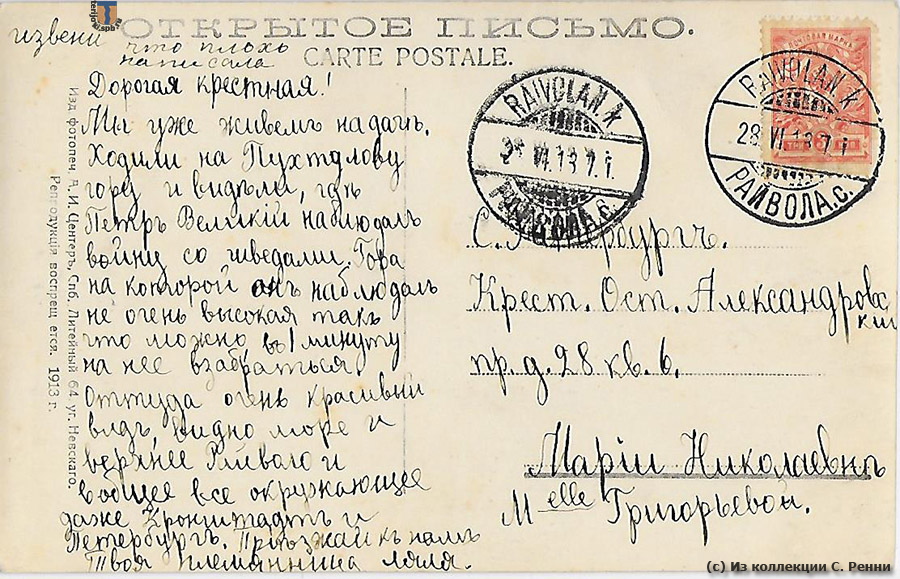 ОТКРЫТОЕ ПИСЬМО.
CARTE POSTALE.
извени что плохъ
написала
Дорогая крестная!
Мы уже живемъ на дачѣ.
Ходили на Пухтолову
гору и видѣли, гдѣ
Петръ Великій наблюдалъ
войну со шведами. Гора
на которой онъ наблюдалъ
не очень высокая такъ
что можно въ 1 минуту
на нее взабраться
Оттуда очень красивый
видъ, видно море и
верхнее Райволо и
вобщее все окружающее
даже Кронштадтъ и
Петербургъ. Пріѣзжай къ намъ
Твоя племянница Ляля.
Изд. фотопеч. А. И. Центеръ, Спб. Литейный 64 уг. Невскаго.
Репродукція воспрещается. 1913 г.
RAIVOLA N.K
VI.13 7.i.
РАЙВОЛА.С.
RAIVOLA N.K
28.VI.13 7.i
РАЙВОЛА.С.
ПОЧТОВАЯ МАРКА
С. Петербургъ.
Крест. Ост. Александровс
кій
пр. д. 28 кв. 6.
Маріи Николаевнѣ
Melle Григорьевой.
(c) Из коллекции С. Ренни